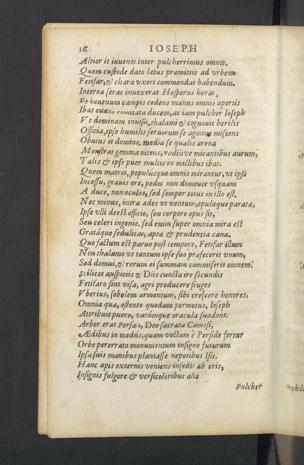 16 IOSEPH
Altior it iuuenes inter pulcherrimus omnes,
Quem custode dato latus præmittit ad vrbem
Fetifar, & charæ vxori commendat habendum.
Interea seras inuexerat Hesperus horas,
Et iuuenum campis cedens manus omnis apertis
Ibat ouans comitata ducem, ac iam pulcher Ioseph
Vt dominam inuisit, thalami & cognouit herilis
Officia, ipse humilis seruorum se agmine miscens
Obuius it domino, media se qualis arena
Monstrat gemma nitens, rediuiue micantibus aurum,
Talis & ipse puer multis in millibus ibat.
Quem matres, populusque omnis mirantur, vt ipsi
Incessu, grauis ore, pedes non dimouet vsquam
A duce, non oculos, sed semper totus in illo est,
Nec minus, intra ædes vt ventum, epulæque paratæ,
Ipse illi deest officio, seu corpore opus sit,
Seu celeri ingenio, sed enim super omnia mira est
Gratáque sedulitas, apta & prudentia cana.
Quo factum est paruo post tempore, Fetifar illum
Non thalamo vt tantum ipse suo præfecerit vnum,
Sed domui, & rerum ei summam commiserit omnem.
Scilicet auspiciis & Diis cuncta ire secundis
Fetifaro sunt visa, agri producere fruges
Vberius, sobolem armentum, sibi crescere honores.
Omnia quæ, ostento quodam permotus, Ioseph
Attribuit puero, vatúmque oracula suadent.
Arbor erat Persæa, Deo sacrata Canopi,
Ædibus in mediis, quam vectam è Perside fertur
Orbe pererrato monumentum insigne futurum
Ipsa suis manibus plantasse nepotibus Isis.
Hanc apis externis veniens insedit ab oris,
Insignis fulgore & versicoloribus alis
Pulcher